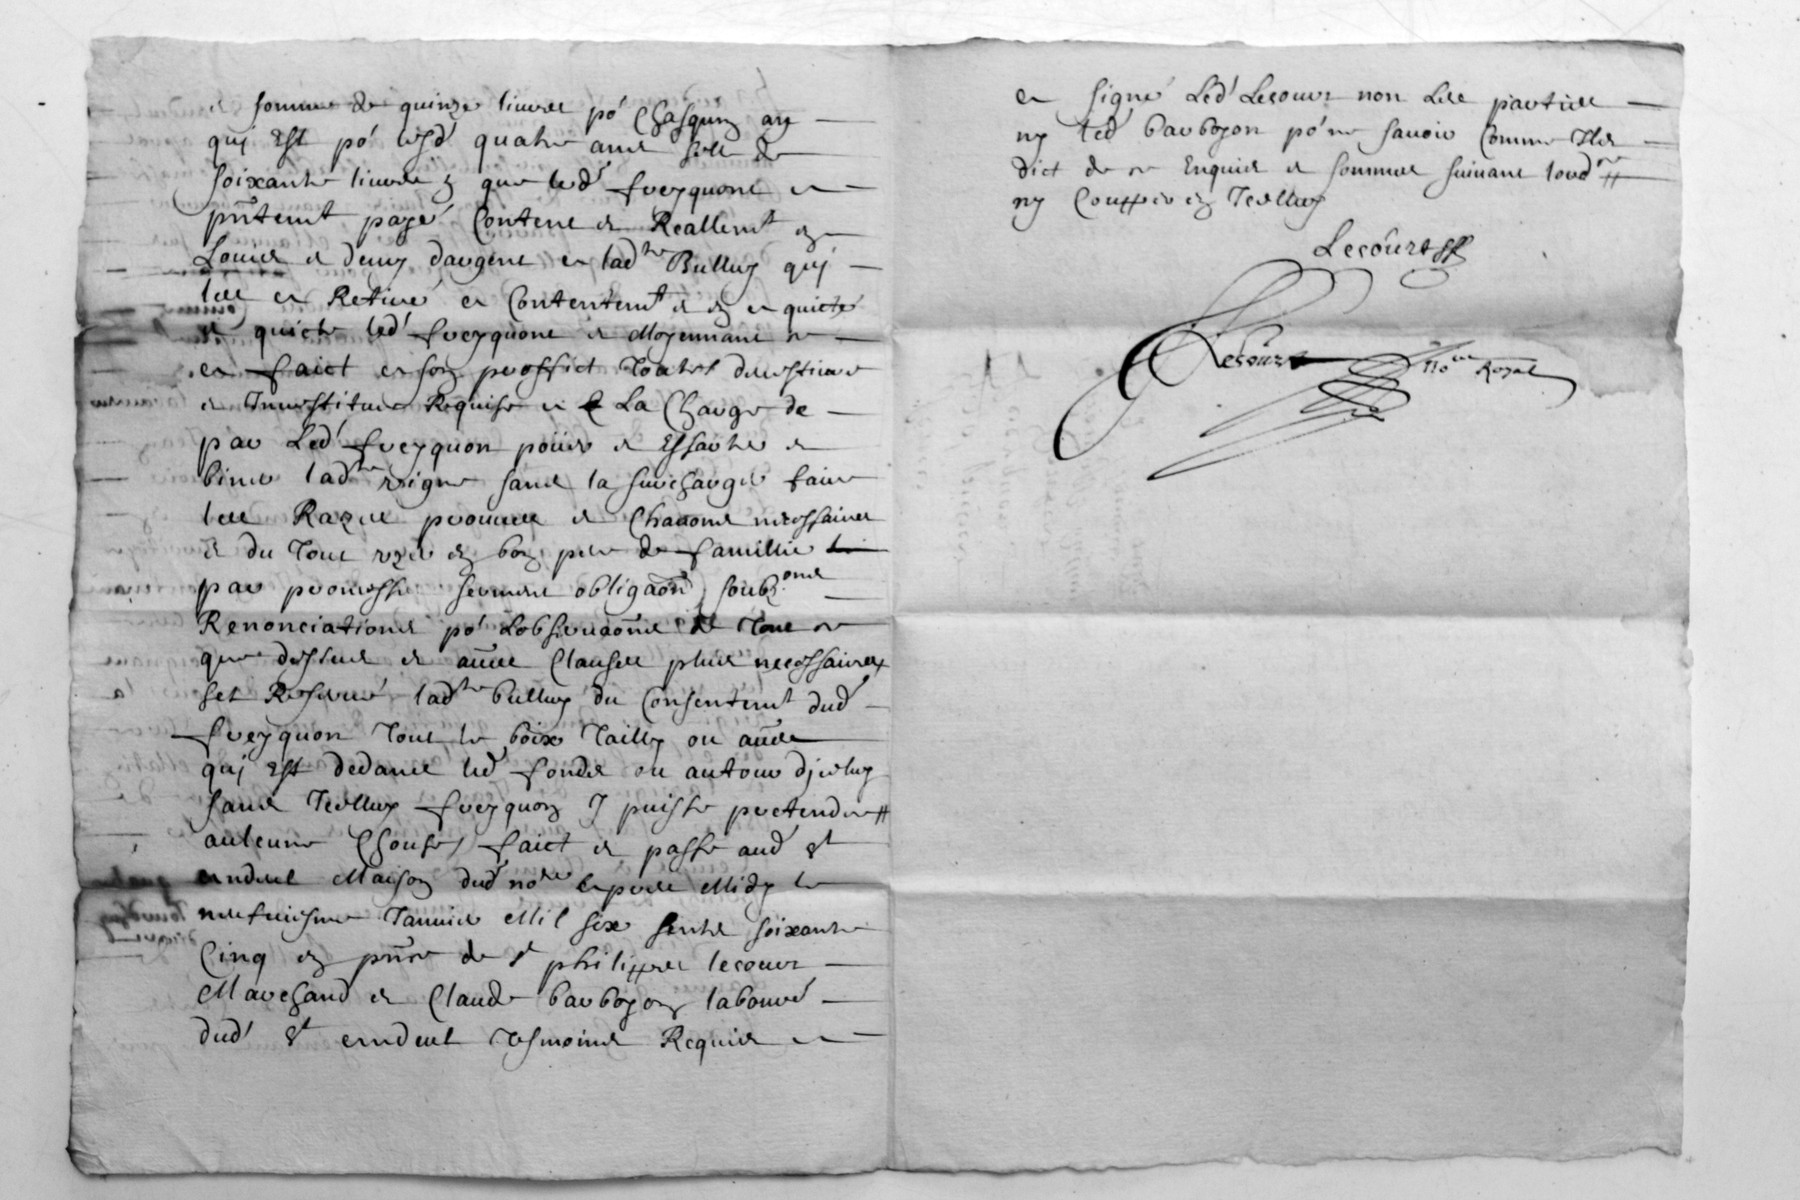 et somme de quinze livres po' Chasqung an
qui Est po' lesd' quatre ans selle de
soixante livres q que led' freyquont a
pntemt payé Contant et Reallemt en
Louis et demy dargent a lad' Bulluy qui
les a Retiré a Contentemt et en a quicté
et quicte led' freyquont et Moyennant ce
a faict a son proffict toutes devestiture
et Investiture Requise et a La Charge de
par Led' freyquon poüer et Essarter et
biner lad' vigne sans la surcharger faire
les Razes prouues et Chaaons necessaires
et du tout vzer en bon pere de famillie
par promesse serment obligaon soubz.ons
Renonciations po' Lobservaons de tout ce
que dessus et aues Clauses plus necessaires
set Reservé lad' bulluy du Consentemt dud'
freyquon tout le boix tailly ou aues
qui Est dedans led' fonds ou autour djceluy
sans Jcelluy freyquon J puisse pretendre
aulcune Chouse, faict et passé aud' St
endeul Maison dud' nore apres Midy le
neufuiesme Januier Mil six sentz soixante
Cinq en pnce de sr philippes lecourt
Marchand et Claude barboyon labouré
dud' St endeul tesmoins Requis
a signé Led' Lecourt non Les parties
ny led' barboyon po' ne savoir Comme Ils
dict de ce Enquis et sommes suivant lord.ce
ny Coupper en Jcelluy
Lecourt
Lecourt No.re Royal